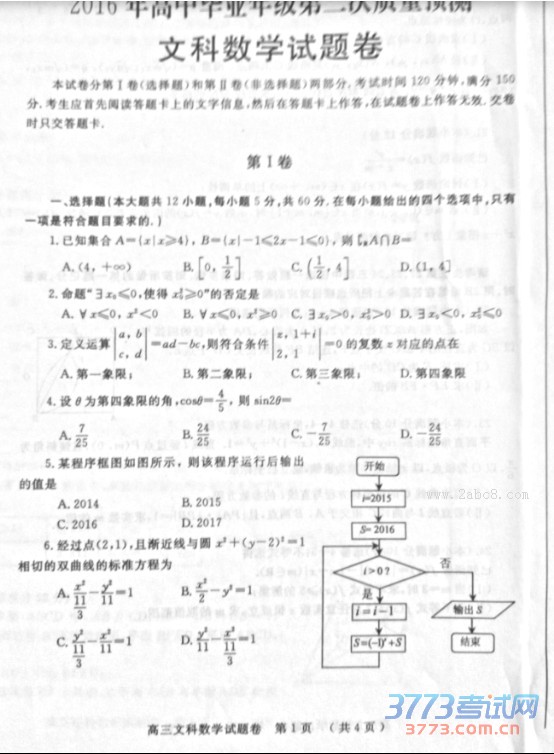 2016年高中毕业年级第二次质量预测
文科数学试题卷
本试卷分第Ⅰ卷(选择题)和第Ⅱ卷(非选择题)两部分.考试时间120分钟,满分150
分.考生应首先阅读答题卡上的文字信息,然后在答题卡上作答,在试题卷上作答无效.交卷
时只交答题卡.
第Ⅰ卷
一、选择题(本大题共12小题,每小题5分,共60分.在每小题给出的四个选项中,只有
一项是符合题目要求的.)
1.已知集合A={x|x⩾4}, B={x|-1⩽2x-1⩽0}, 则∁ᵣA∩B=
A.(4, +∞) B.[0, 1/2] C.(1/2, 4] D.(1,4]
2.命题“∃x₀⩽0,使得x₀²⩾0”的否定是
A.∀x⩽0, x²<0 B.∀x⩽0, x²⩾0 C.∃x₀>0, x₀²>0 D.∃x₀<0, x₀²⩽0
3.定义运算|a, b c, d|=ad-bc,则符合条件|z, 1+i 2, 1|=0的复数z对应的点在
A.第一象限; B.第二象限; C.第三象限; D.第四象限
4.设θ为第四象限的角, cosθ=4/5, 则sin2θ=
A. 7/25 B. 24/25 C.-7/25 D.-24/25
5.某程序框图如图所示，则该程序运行后输出
的值是
A.2014 B.2015
C.2016 D.2017
6.经过点(2,1),且渐近线与圆x²+(y-2)²=1
相切的双曲线的标准方程为
A. x²/(11/3)-y²/11=1 B. x²/2-y²=1
C. y²/(11/3)-x²/11=1 D. y²/11-x²/(11/3)=1
开始
i=2015
S=2016
i>0?
否
是
i=i-1
输出S
S=(-1)ⁱ+S
结束
www.2abc8.com
高三文科数学试题卷 第1页 (共4页)
3773考试网
3773.com.cn